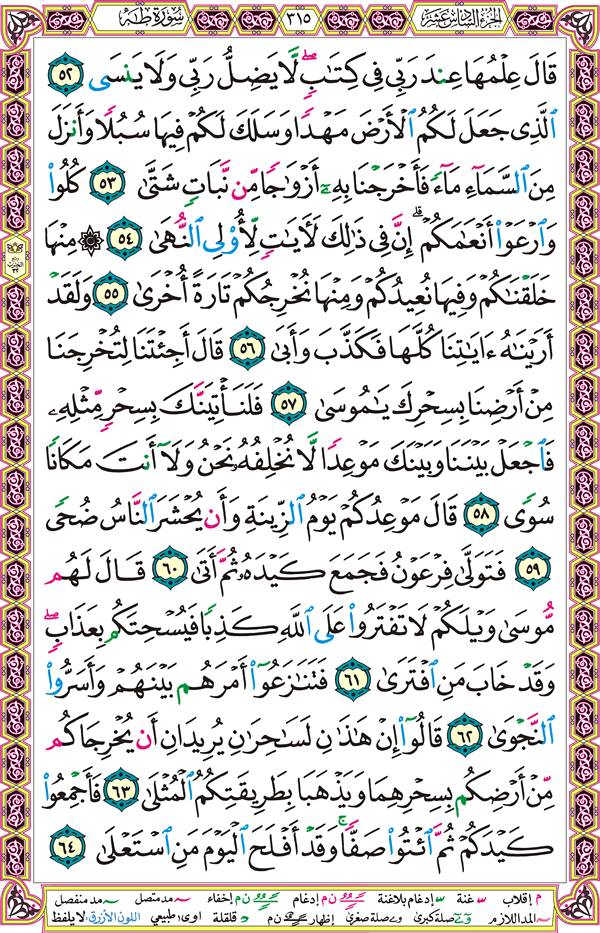 الجزء السادس عشر ٣١٥ سورة طه
قَالَ عِلْمُهَا عِندَ رَبِّي فِي كِتَٰبٖۖ لَّا يَضِلُّ رَبِّي وَلَا يَنسَى ٥٢
ٱلَّذِي جَعَلَ لَكُمُ ٱلْأَرْضَ مَهْدٗا وَسَلَكَ لَكُمْ فِيهَا سُبُلٗا وَأَنزَلَ
مِنَ ٱلسَّمَآءِ مَآءٗ فَأَخْرَجْنَا بِهِۦٓ أَزْوَٰجٗا مِّن نَّبَاتٖ شَتَّىٰ ٥٣ كُلُوا۟
وَٱرْعَوْا۟ أَنْعَٰمَكُمْۗ إِنَّ فِي ذَٰلِكَ لَأٓيَٰتٖ لِّأُو۟لِي ٱلنُّهَىٰ ٥٤ ۞ مِنْهَا
خَلَقْنَٰكُمْ وَفِيهَا نُعِيدُكُمْ وَمِنْهَا نُخْرِجُكُمْ تَارَةً أُخْرَىٰ ٥٥ وَلَقَدْ
أَرَيْنَٰهُ ءَايَٰتِنَا كُلَّهَا فَكَذَّبَ وَأَبَىٰ ٥٦ قَالَ أَجِئْتَنَا لِتُخْرِجَنَا
مِنْ أَرْضِنَا بِسِحْرِكَ يَٰمُوسَىٰ ٥٧ فَلَنَأْتِيَنَّكَ بِسِحْرٖ مِّثْلِهِۦ
فَٱجْعَلْ بَيْنَنَا وَبَيْنَكَ مَوْعِدٗا لَّا نُخْلِفُهُۥ نَحْنُ وَلَآ أَنتَ مَكَانٗا
سُوٗى ٥٨ قَالَ مَوْعِدُكُمْ يَوْمُ ٱلزِّينَةِ وَأَن يُحْشَرَ ٱلنَّاسُ ضُحٗى
٥٩ فَتَوَلَّىٰ فِرْعَوْنُ فَجَمَعَ كَيْدَهُۥ ثُمَّ أَتَىٰ ٦٠ قَالَ لَهُم
مُّوسَىٰ وَيْلَكُمْ لَا تَفْتَرُوا۟ عَلَى ٱللَّهِ كَذِبٗا فَيُسْحِتَكُم بِعَذَابٖۖ
وَقَدْ خَابَ مَنِ ٱفْتَرَىٰ ٦١ فَتَنَٰزَعُوٓا۟ أَمْرَهُم بَيْنَهُمْ وَأَسَرُّوا۟
ٱلنَّجْوَىٰ ٦٢ قَالُوٓا۟ إِنْ هَٰذَٰنِ لَسَٰحِرَٰنِ يُرِيدَانِ أَن يُخْرِجَاكُم
مِّنْ أَرْضِكُم بِسِحْرِهِمَا وَيَذْهَبَا بِطَرِيقَتِكُمُ ٱلْمُثْلَىٰ ٦٣ فَأَجْمِعُوا۟
كَيْدَكُمْ ثُمَّ ٱئْتُوا۟ صَفّٗاۚ وَقَدْ أَفْلَحَ ٱلْيَوْمَ مَنِ ٱسْتَعْلَىٰ ٦٤
م إقلاب غنة إدغام بلاغنة ن م إدغام ن م إخفاء مد متصل مد منفصل
المد اللازم صلة كبرى صلة صغرى إظهار ن م قلقلة اوى طبيعي اللون الأزرق: لا يلفظ